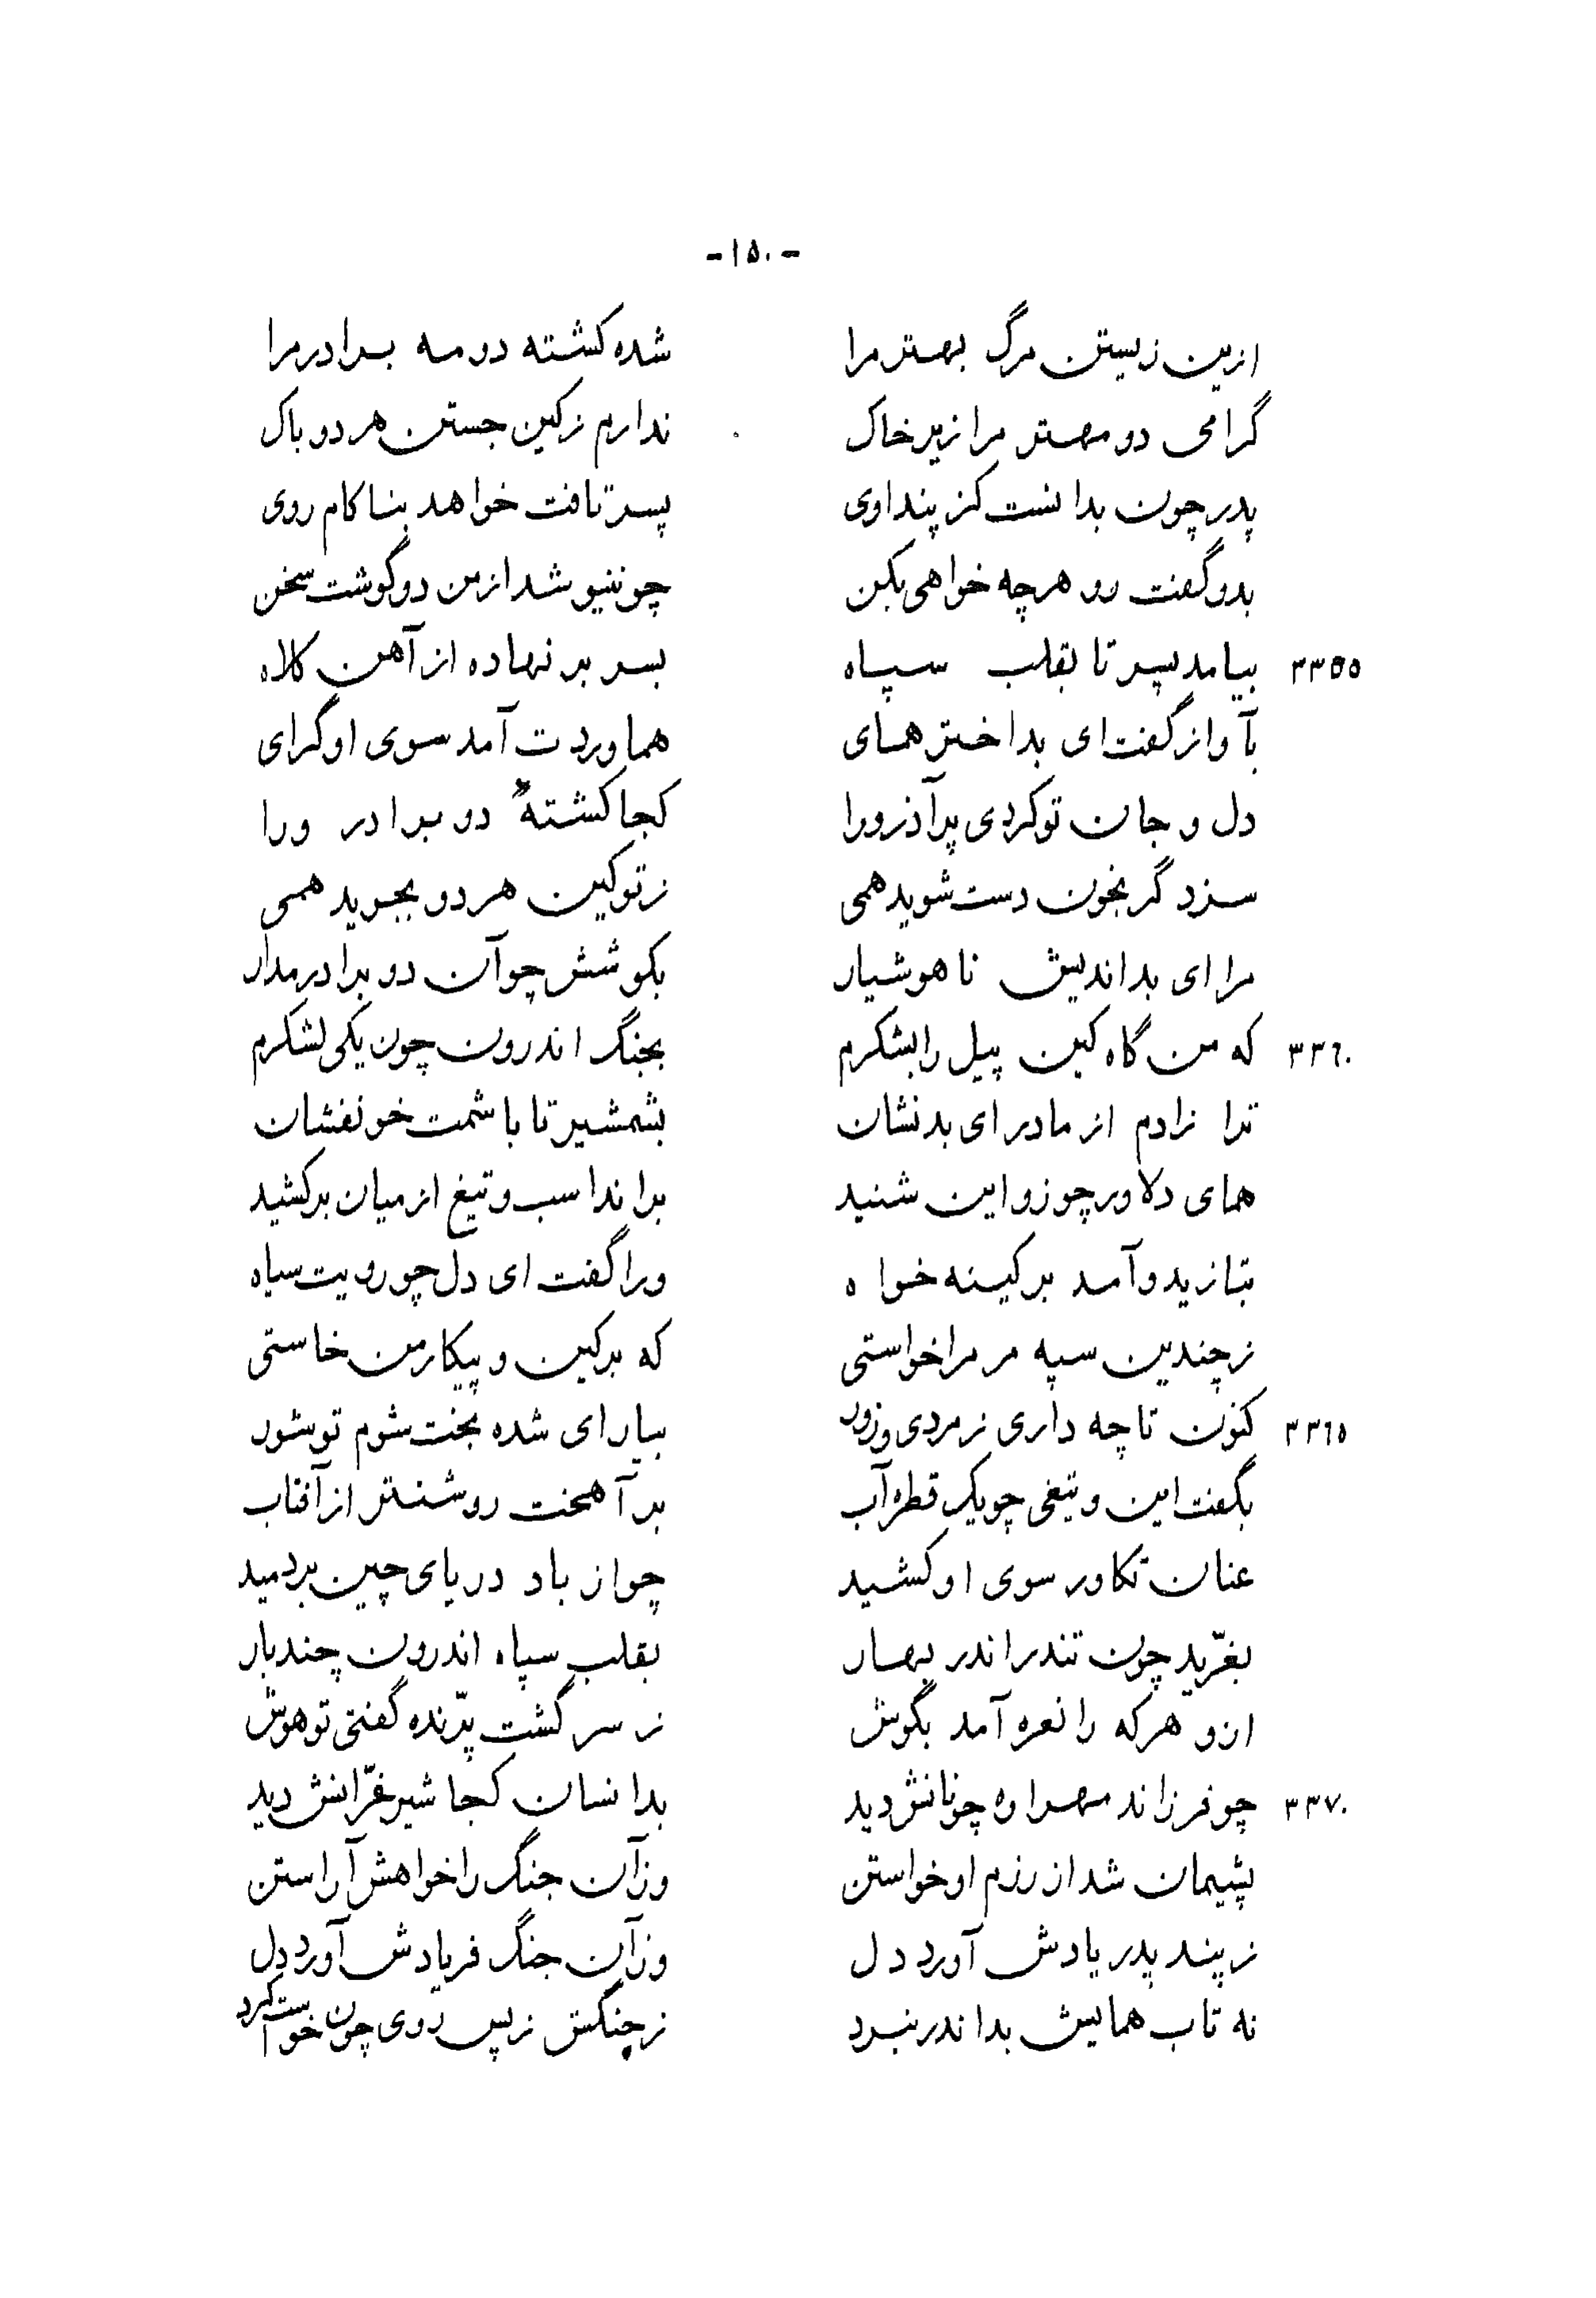 -۱۵۰-
ازین زیستن مرگ بهتر مرا شده کشته دو مه برادر مرا
گرامی دو مهتر مرا زیر خاک ندارم ز کین جستن هر دو باک
پدر چون بدانست کز پند اوی پسر تافت خواهد بناکام روی
بدو گفت رو هرچه خواهی بکن چو ننیوشد از من دو گوشت سخن
۳۳۵۵ بیامد پسر تا بقلب سپاه بسر بر نهاده از آهن کلاه
بآواز گفت ای بداختر همای هماوردت آمد سوی او گرای
دل و جان تو کردی پرآذر ورا کجا کشتهٔ دو برادر ورا
سزد گر بخون دست شوید همی ز تو کین هر دو بجوید همی
مرا ای بداندیش ناهوشیار بکوشش چو آن دو برادر مدار
۳۳٦۰ که من گاه کین پیل را بشکرم بجنگ اندرون چون یکی لشکرم
ترا زادم از مادر ای بدنشان بشمشیر تا باشمت خونفشان
همای دلاور چو زو این شنید براند اسب و تیغ از میان برکشید
بتازید و آمد بر کینه خواه ورا گفت ای دل چو رویت سیاه
ز چندین سپه مر مرا خواستی که بر کین و پیکار من خاستی
۳۳٦۵ کنون تا چه داری ز مردی و زور بیار ای شده بخت شوم تو شور
بگفت این و تیغی چو یک قطره آب برآهخت روشنتر از آفتاب
عنان تکاور سوی او کشید چو از باد دریای چین بردمید
بغرّید چون تندر اندر بهار بقلب سپاه اندرون چند بار
ازو هر که را نعره آمد بگوش ز سر گشت پرّنده گفتی تو هوش
۳۳۷۰ چو فرزاند مهراوه چونانش دید بدانسان کجا شیر غرّانش دید
پشیمان شد از رزم او خواستن وزآن جنگ را خواهش آراستن
ز پند پدر یادش آورد دل وزآن جنگ فریادش آورد دل
نه تاب همایش بد اندر نبرد ز چنگش ز پس روی چون خواست کرد